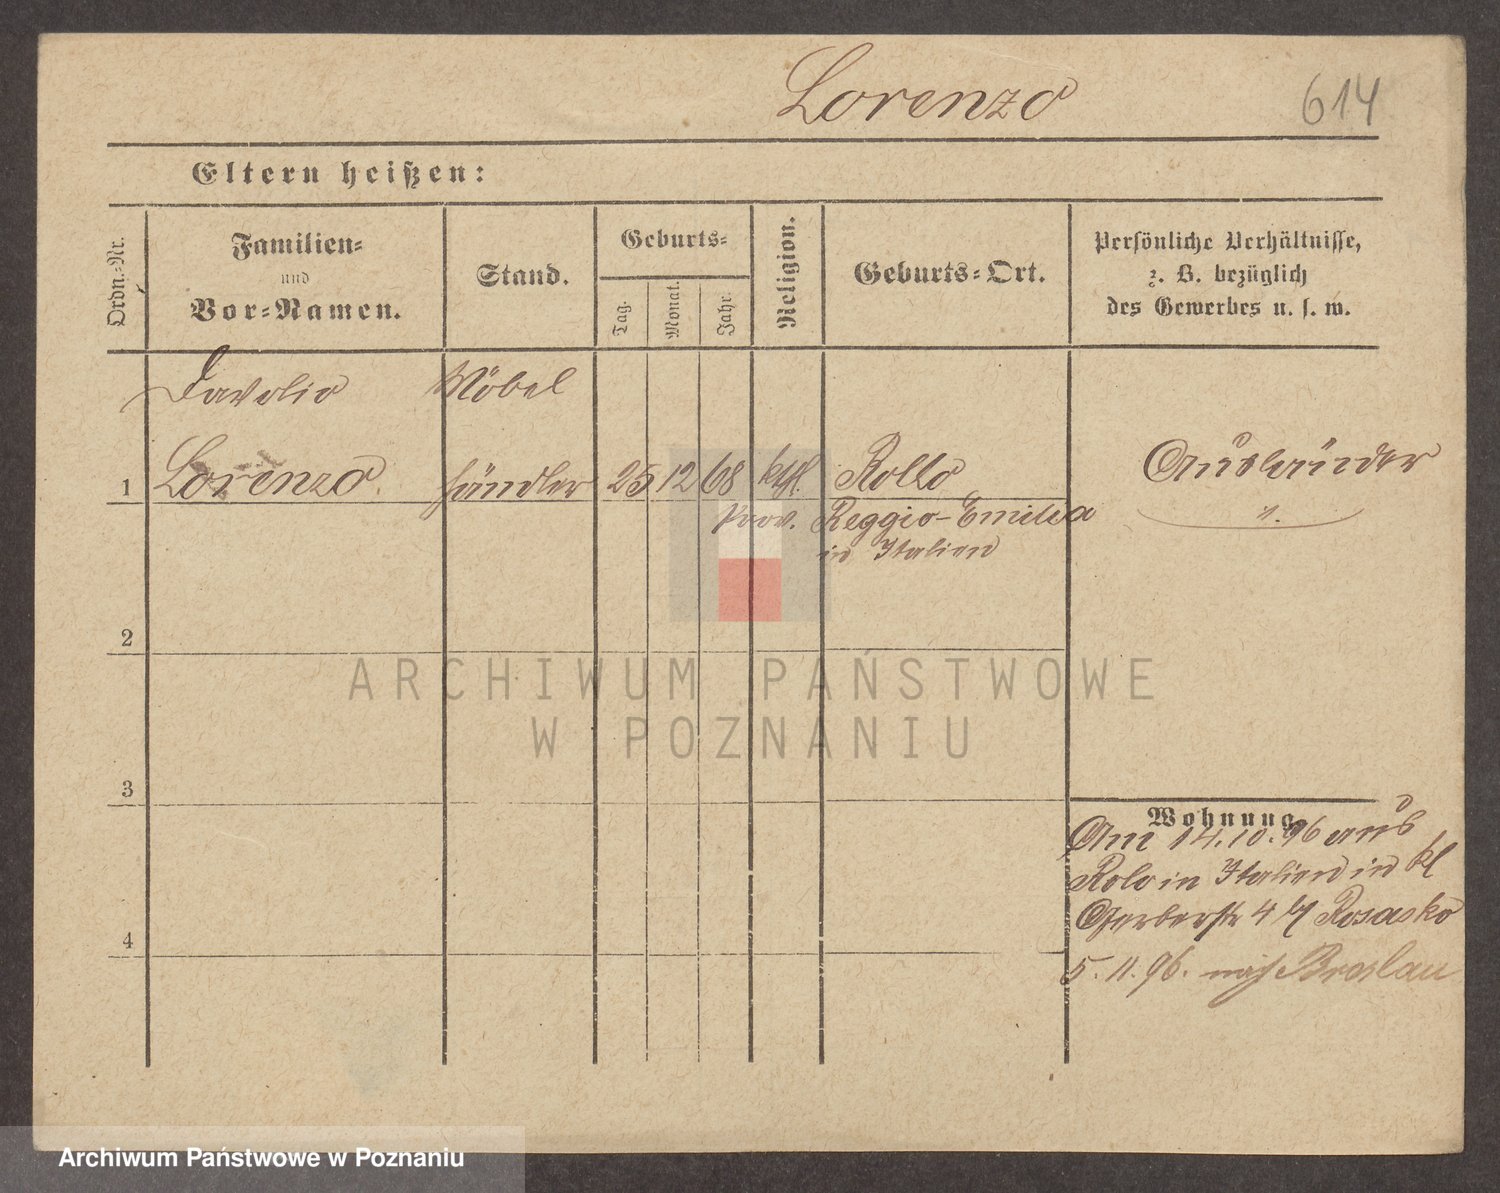 Lorenzo
614
Eltern heißen:
Ordn.-Nr.
Familien-
und
Vor-Namen.
Stand.
Geburts-
Tag.
Monat.
Jahr.
Religion.
Geburts-Ort.
Persönliche Verhältnisse,
z. B. bezüglich
des Gewerbes u. s. w.
Davolio
Möbel
1
Lorenzo
händler
25
12
68
ktl.
Rollo
Ausländer
Prov. Reggio-Emilia
in Italien
1.
2
ARCHIWUM PAŃSTWOWE
W POZNANIU
3
Wohnung
Am 14.10.96 aus
Rolo in Italien in kl
Gerberstr 4 b/ Rosasko
4
5.11.96. nach Breslau
Archiwum Państwowe w Poznaniu